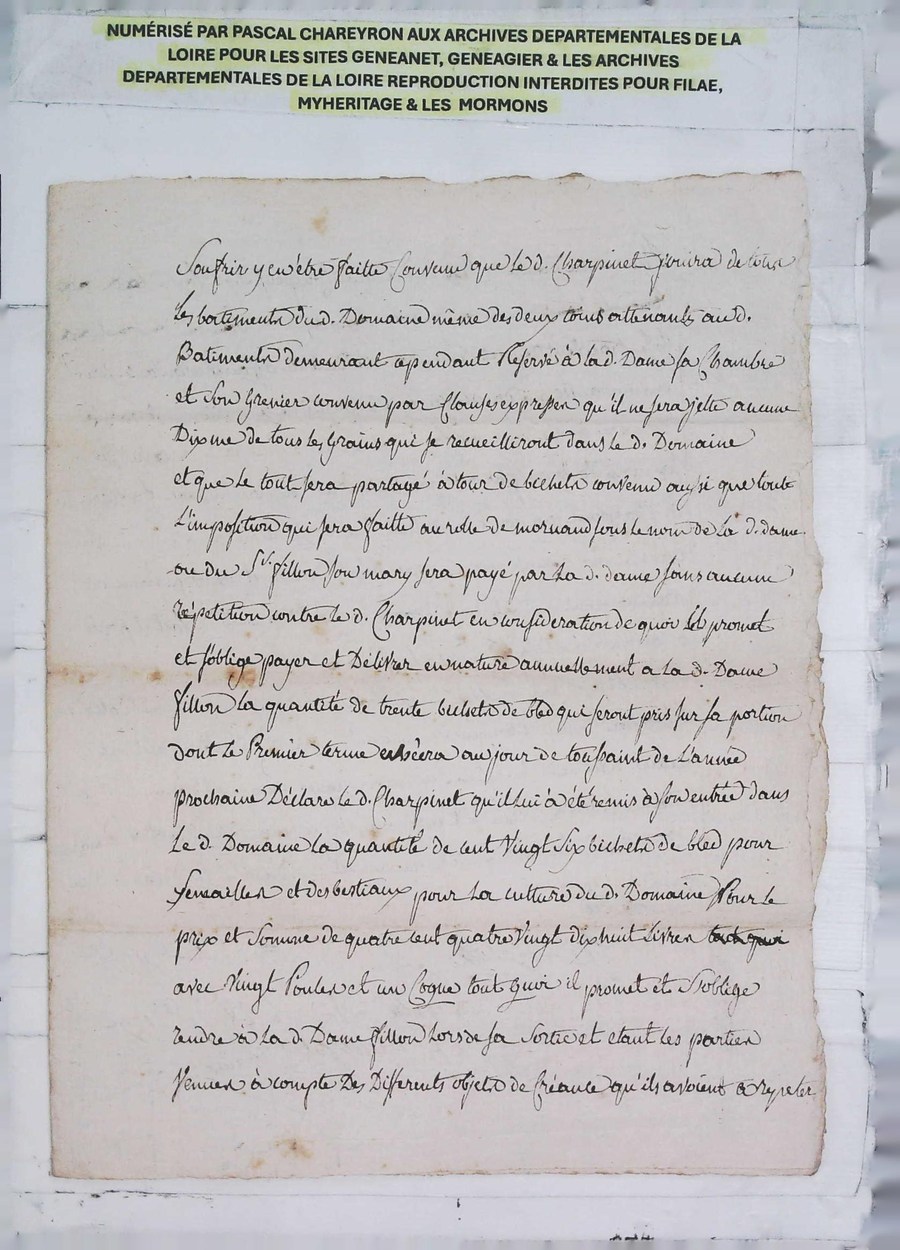 NUMÉRISÉ PAR PASCAL CHAREYRON AUX ARCHIVES DEPARTEMENTALES DE LA
LOIRE POUR LES SITES GENEANET, GENEAGIER & LES ARCHIVES
DEPARTEMENTALES DE LA LOIRE REPRODUCTION INTERDITES POUR FILAE,
MYHERITAGE & LES MORMONS
Soufrir y en être faitte Convenu que Le d. Charpinet Jouira de tous
Les batiments du d. Domaine même des deux attenants au d.
Batiments demeurant cependant Reservé à la d. Dame sa Chambre
et Son Grenier convenu par Clauses expresses qu'il ne sera jetté aucune
Dixme de tous les grains qui se recueilliront dans le d. Domaine
et que Le tout sera partagé à tour de bichets convenu aussi que toute
L'imposition qui sera faitte au rolle de mornand sous le nom de La d. dame
ou du Sr. fillon son mary sera payé par La d. dame sans aucune
répetition contre le d. Charpinet en consideration de quoi il promet
et s'oblige payer et Délivrer en nature annuellement a La d. Dame
fillon la quantité de trente bichets de bled qui seront pris sur sa portion
dont le Premier terme au jour de toussaint de L'année
prochaine Déclare le d. Charpinet qu'il Lui à été remis à son entrée dans
Le d. Domaine La quantité de cent Vingt Six bichets de bled pour
Semailles et des bestiaux pour La culture du d. Domaine Pour Le
prix et Somme de quatre cent quatre Vingt dix huit Livres
avec Vingt Poules et un Coque tout quoi il promet et S'oblige
rendre à La d. Dame fillon Lors de sa Sortie et etant Les parties
Venues à compte Des Differents objets de Créance qu'ils avoient à repeter